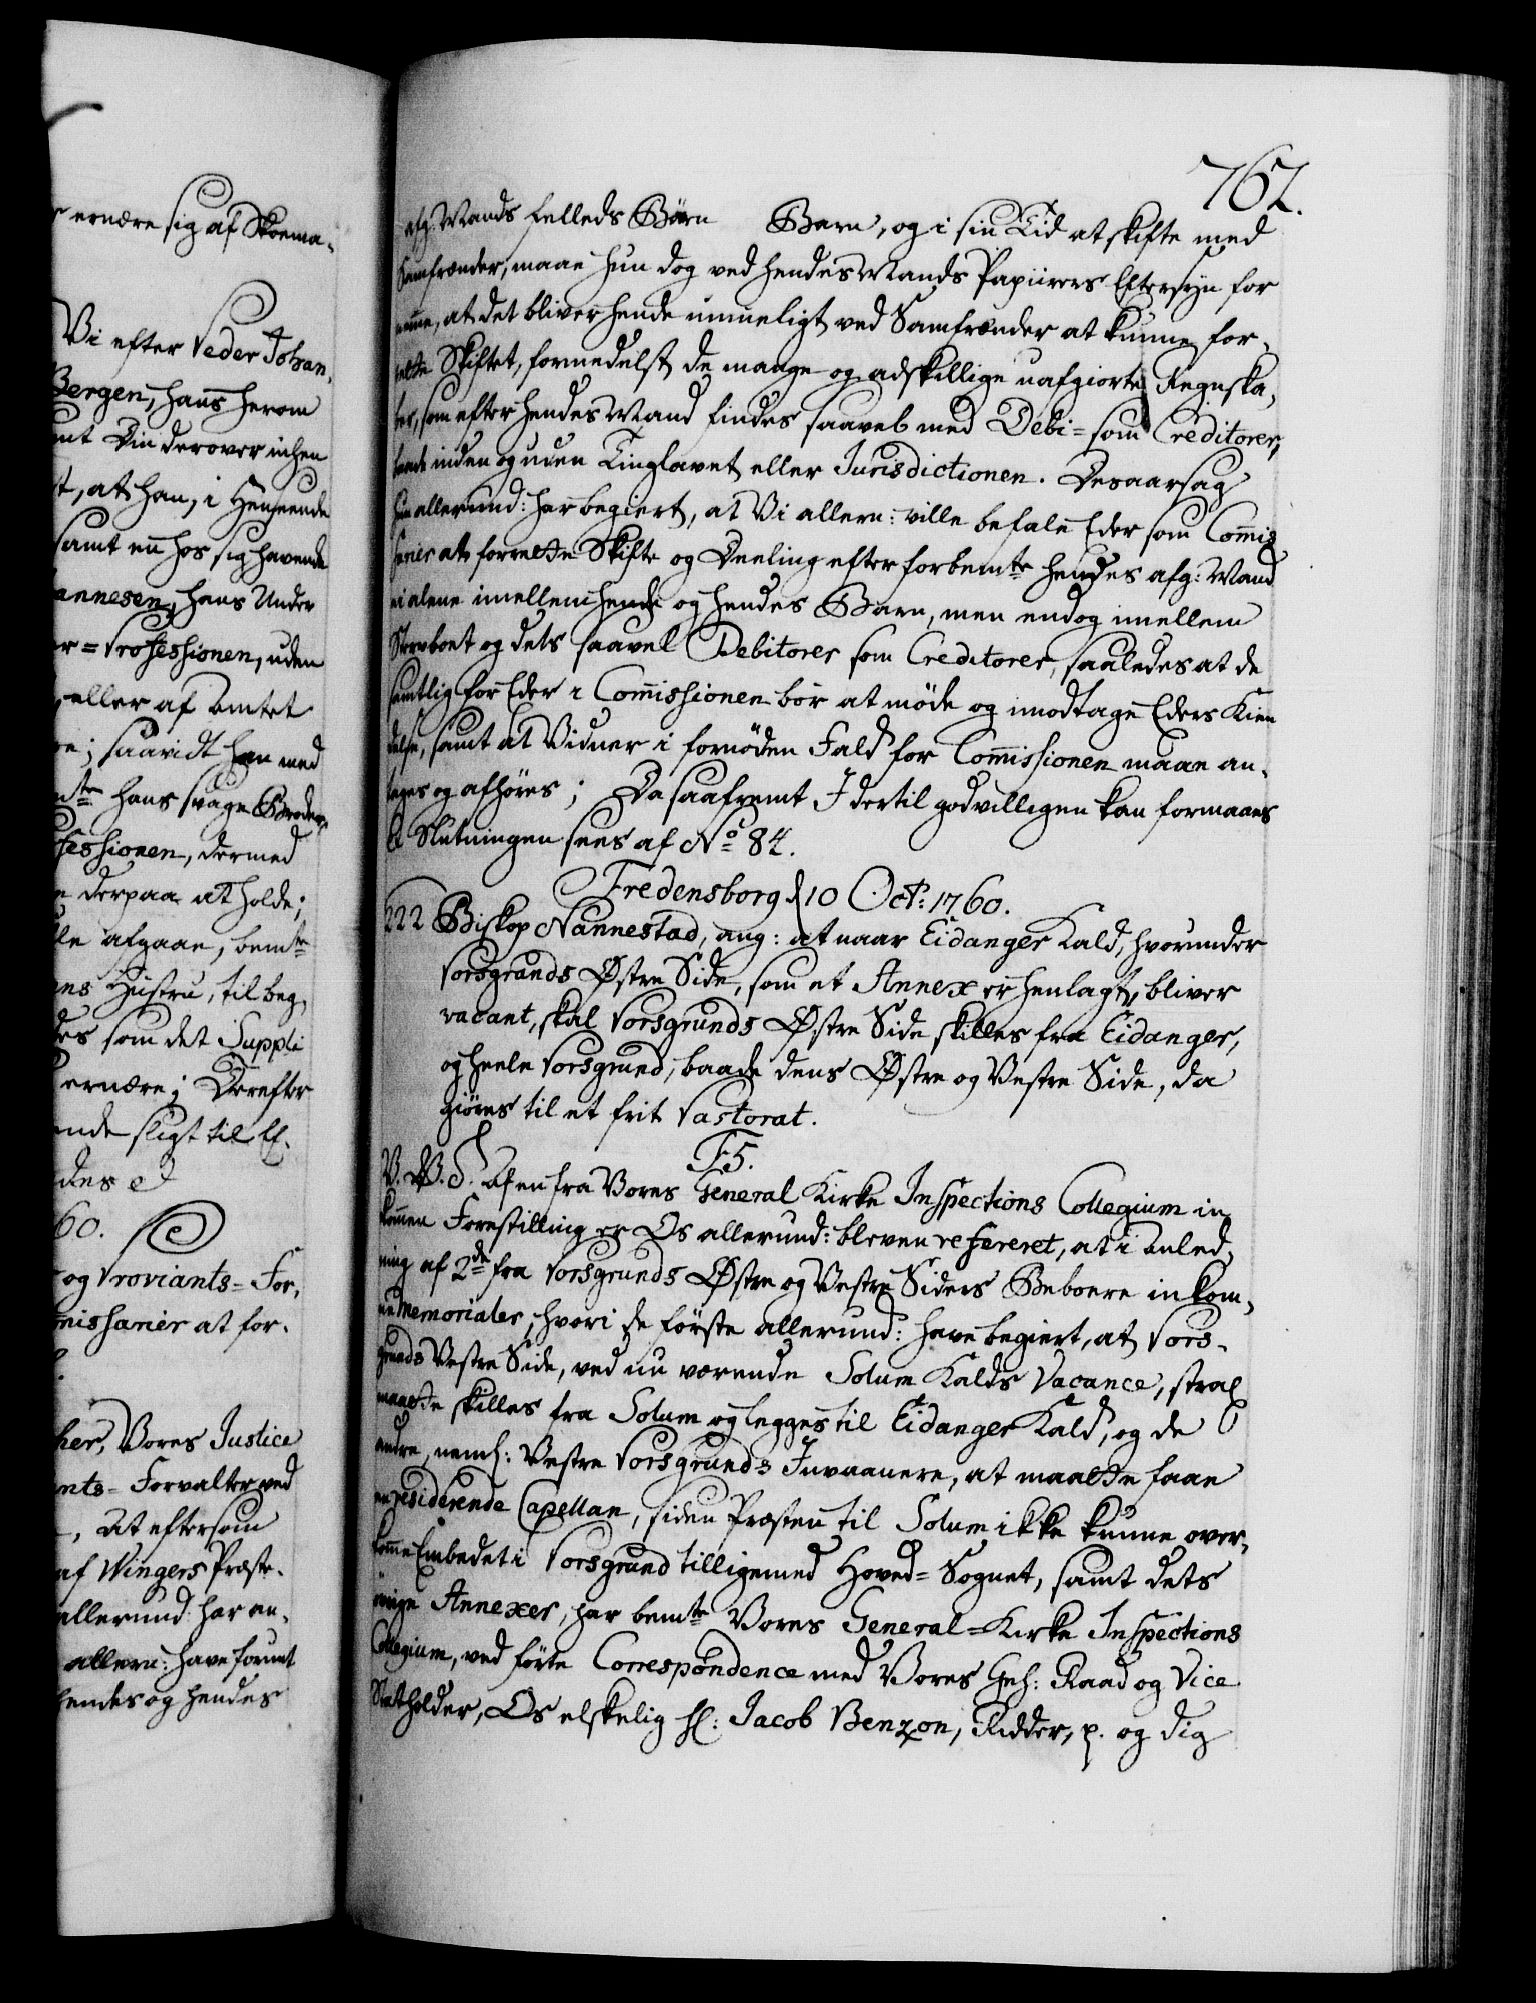 r ernære sig af Skoema-
Vi efter Peder Johan-
Bergen, hans herom
at han, i Henseende
samt en hos sig havende
annesen, hans Under
er=Professionen, uden
eller af Amtet
saavidt han med
hans svage Broder,
fessionen, dermed
derpaa at holde;
afgaae, bemte
ns Hustru, til beg-
des som det Suppli
ernære; Derefter
ende sligt til Ef-
des
60.
og Proviants=For-
missarier at for-
her, Vores Justice
nts=Forvalter ved
, At eftersom
af Wingers Præste-
allerund: har an-
allern: have forundt
hendes og hendes
762.
afg. Mands felleds Børn Barn, og i sin Tid at skifte med
Samfrænder, maae hun dog ved hendes Mands Papiirers Eftersyn for
nemme, at det bliver hende umueligt ved Samfrænder at kunne for-
rette Skiftet, formedelst de mange og adskillige uafgiorte Regnska-
ber, som efter hendes Mand findes saavel med Debi= som Creditorer,
baade inden og uden Tinglavet eller Jurisdictionen. Desaarsag
hun allerund: har begiert, at Vi allern: ville befale Eder som Com̄is
sarier at forrette Skifte og Deeling efter forbemte hendes afg: Mand
ei alene imellem hende og hendes Barn, men endog imellem
Stervboet og dets saavel Debitorer som Creditorer, saaledes at de
samtlig for Eder i Com̄issionen bør at møde og imodtage Eders Kien
delse, samt at Vidner i fornøden Fald for Com̄issionen maae an-
tages og afhøres; Da saafremt I dertil godvilligen kan formaaes
&c Slutningen sees af No 84.
Fredensborg d 10 Oct: 1760.
222 Biskop Nannestad, ang: at naar Eidanger Kald, hvorunder
Porsgrunds Østre Side, som et Annex er henlagt, bliver
vacant, skal Porsgrunds Østre Side skilles fra Eidanger,
og heele Porsgrund, baade dens Østre og Vestre Side, da
giøres til et frit Pastorat.
F5.
V. G. T. Af en fra Vores General Kirke Inspections Collegium in
kom̄en Forestilling er Os allerund: bleven refereret, at i Anled-
ning af 2de fra Porsgrunds Østre og Vestre Siders Beboere inkom-
ne Memorialer, hvori de første allerund: have begiert, at Pors-
grunds Vestre Side, ved nu værende Solum Kalds Vacance, strax
maatte skilles fra Solum og legges til Eidanger Kald, og de
andre, neml: Vestre Porsgrunds Invaanere, at maatte faae
en residerende Capellan, siden Præsten til Solum ikke kunne over-
kom̄e Embedet i Porsgrund tilligemed Hoved=Sognet, samt dets
øvrige Annexer, har bemte Vores General=Kirke Inspections
Collegium, ved førte Correspondence med Vores Geh: Raad og Vice
Statholder, Os elskelig H: Jacob Benzon, Ridder, p. og dig